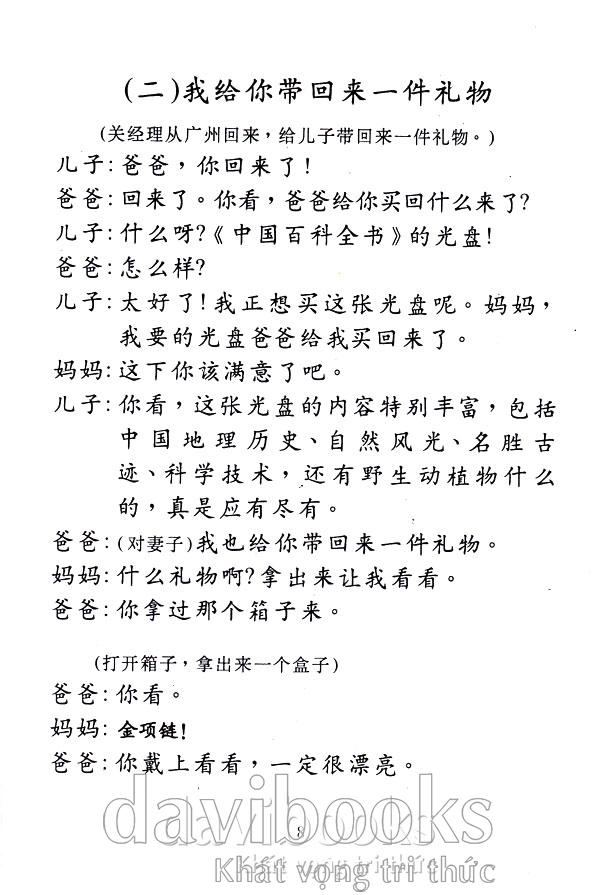 (二)我给你带回来一件礼物
(关经理从广州回来,给儿子带回来一件礼物。)
儿子:爸爸,你回来了!
爸爸:回来了。你看,爸爸给你买回什么来了?
儿子:什么呀?《中国百科全书》的光盘!
爸爸:怎么样?
儿子:太好了!我正想买这张光盘呢。妈妈,
我要的光盘爸爸给我买回来了。
妈妈:这下你该满意了吧。
儿子:你看,这张光盘的内容特别丰富,包括
中国地理历史、自然风光、名胜古
迹、科学技术,还有野生动植物什么
的,真是应有尽有。
爸爸:(对妻子)我也给你带回来一件礼物。
妈妈:什么礼物啊?拿出来让我看看。
爸爸:你拿过那个箱子来。
(打开箱子,拿出来一个盒子)
爸爸:你看。
妈妈:金项链!
爸爸:你戴上看看,一定很漂亮。
davibooks
8
Khát vọng tri thức